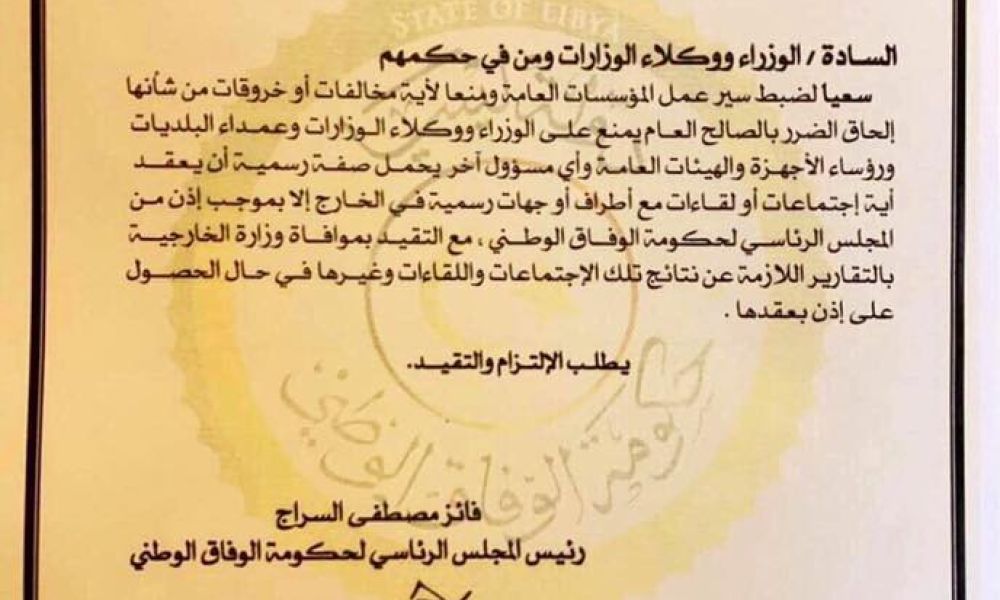 STATE OF LIBYA
السادة / الوزراء ووكلاء الوزارات ومن في حكمهم
سعيا لضبط سير عمل المؤسسات العامة ومنعا لأية مخالفات أو خروقات من شأنها
إلحاق الضرر بالصالح العام يمنع على الوزراء ووكلاء الوزارات وعمداء البلديات
ورؤساء الأجهزة والهيئات العامة وأي مسؤول آخر يحمل صفة رسمية أن يعقد
أية إجتماعات أو لقاءات مع أطراف أو جهات رسمية في الخارج إلا بموجب إذن من
المجلس الرئاسي لحكومة الوفاق الوطني ، مع التقيد بموافاة وزارة الخارجية
بالتقارير اللازمة عن نتائج تلك الإجتماعات واللقاءات وغيرها في حال الحصول
على إذن بعقدها .
يطلب الإلتزام والتقيد.
حكومة الوفاق الوطني
فائز مصطفى السراج
رئيس المجلس الرئاسي لحكومة الوفاق الوطني